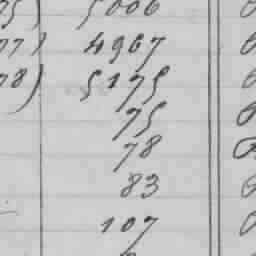 75) 5006
77) 4967
78) 5175
75
78
83
107